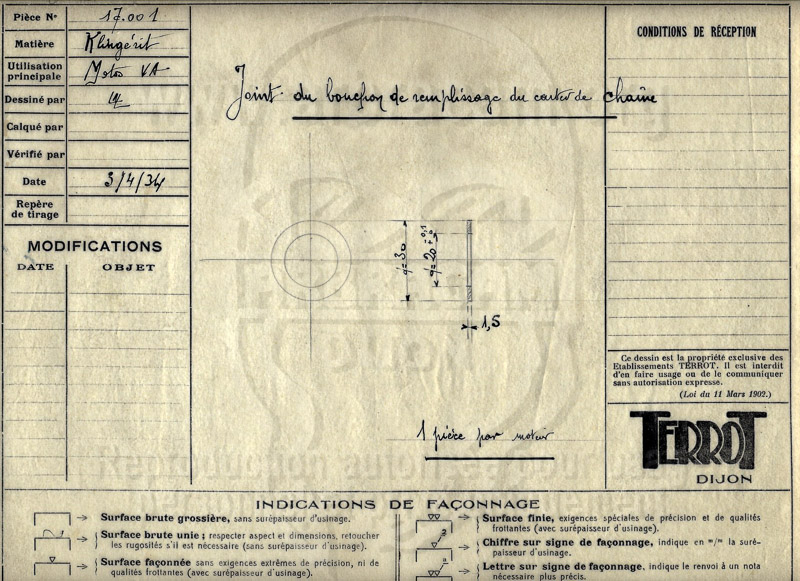 Pièce Nº 17.001
Matière Klingérit
Utilisation principale Moto VA
Dessiné par
Calqué par
Vérifié par
Date 3/4/34
Repère de tirage
MODIFICATIONS
DATE OBJET
Joint du bouchon de remplissage du carter de chaîne
d=30
d=20
1,5
1 pièce par moteur
CONDITIONS DE RÉCEPTION
Ce dessin est la propriété exclusive des
Etablissements TERROT. Il est interdit
d'en faire usage ou de le communiquer
sans autorisation expresse.
(Loi du 11 Mars 1902.)
TERROT
DIJON
INDICATIONS DE FAÇONNAGE
Surface brute grossière, sans surépaisseur d'usinage.
Surface brute unie ; respecter aspect et dimensions, retoucher
les rugosités s'il est nécessaire (sans surépaisseur d'usinage).
Surface façonnée sans exigences extrêmes de précision, ni de
qualités frottantes (avec surépaisseur d'usinage).
Surface finie, exigences spéciales de précision et de qualités
frottantes (avec surépaisseur d'usinage).
Chiffre sur signe de façonnage, indique en "/" la suré-
paisseur d'usinage.
Lettre sur signe de façonnage, indique le renvoi à un nota
nécessaire plus précis.